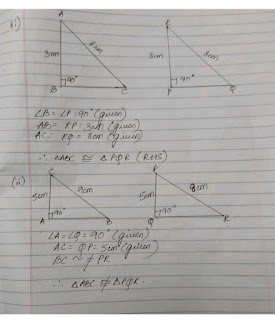 8i)
A
R
3cm
8cm
3cm
8cm
B
90°
C
P
90°
Q
∠B = ∠P = 90° (given)
AB = RP = 3cm (given)
AC = RQ = 8cm (given)
∴ ΔABC ≅ ΔPQR (RHS)
(ii)
C
P
5cm
9cm
5cm
8cm
A
90°
B
Q
90°
R
∠A = ∠Q = 90° (given)
AC = QP = 5cm (given)
BC ≠ PR
∴ ΔABC ≇ ΔPQR